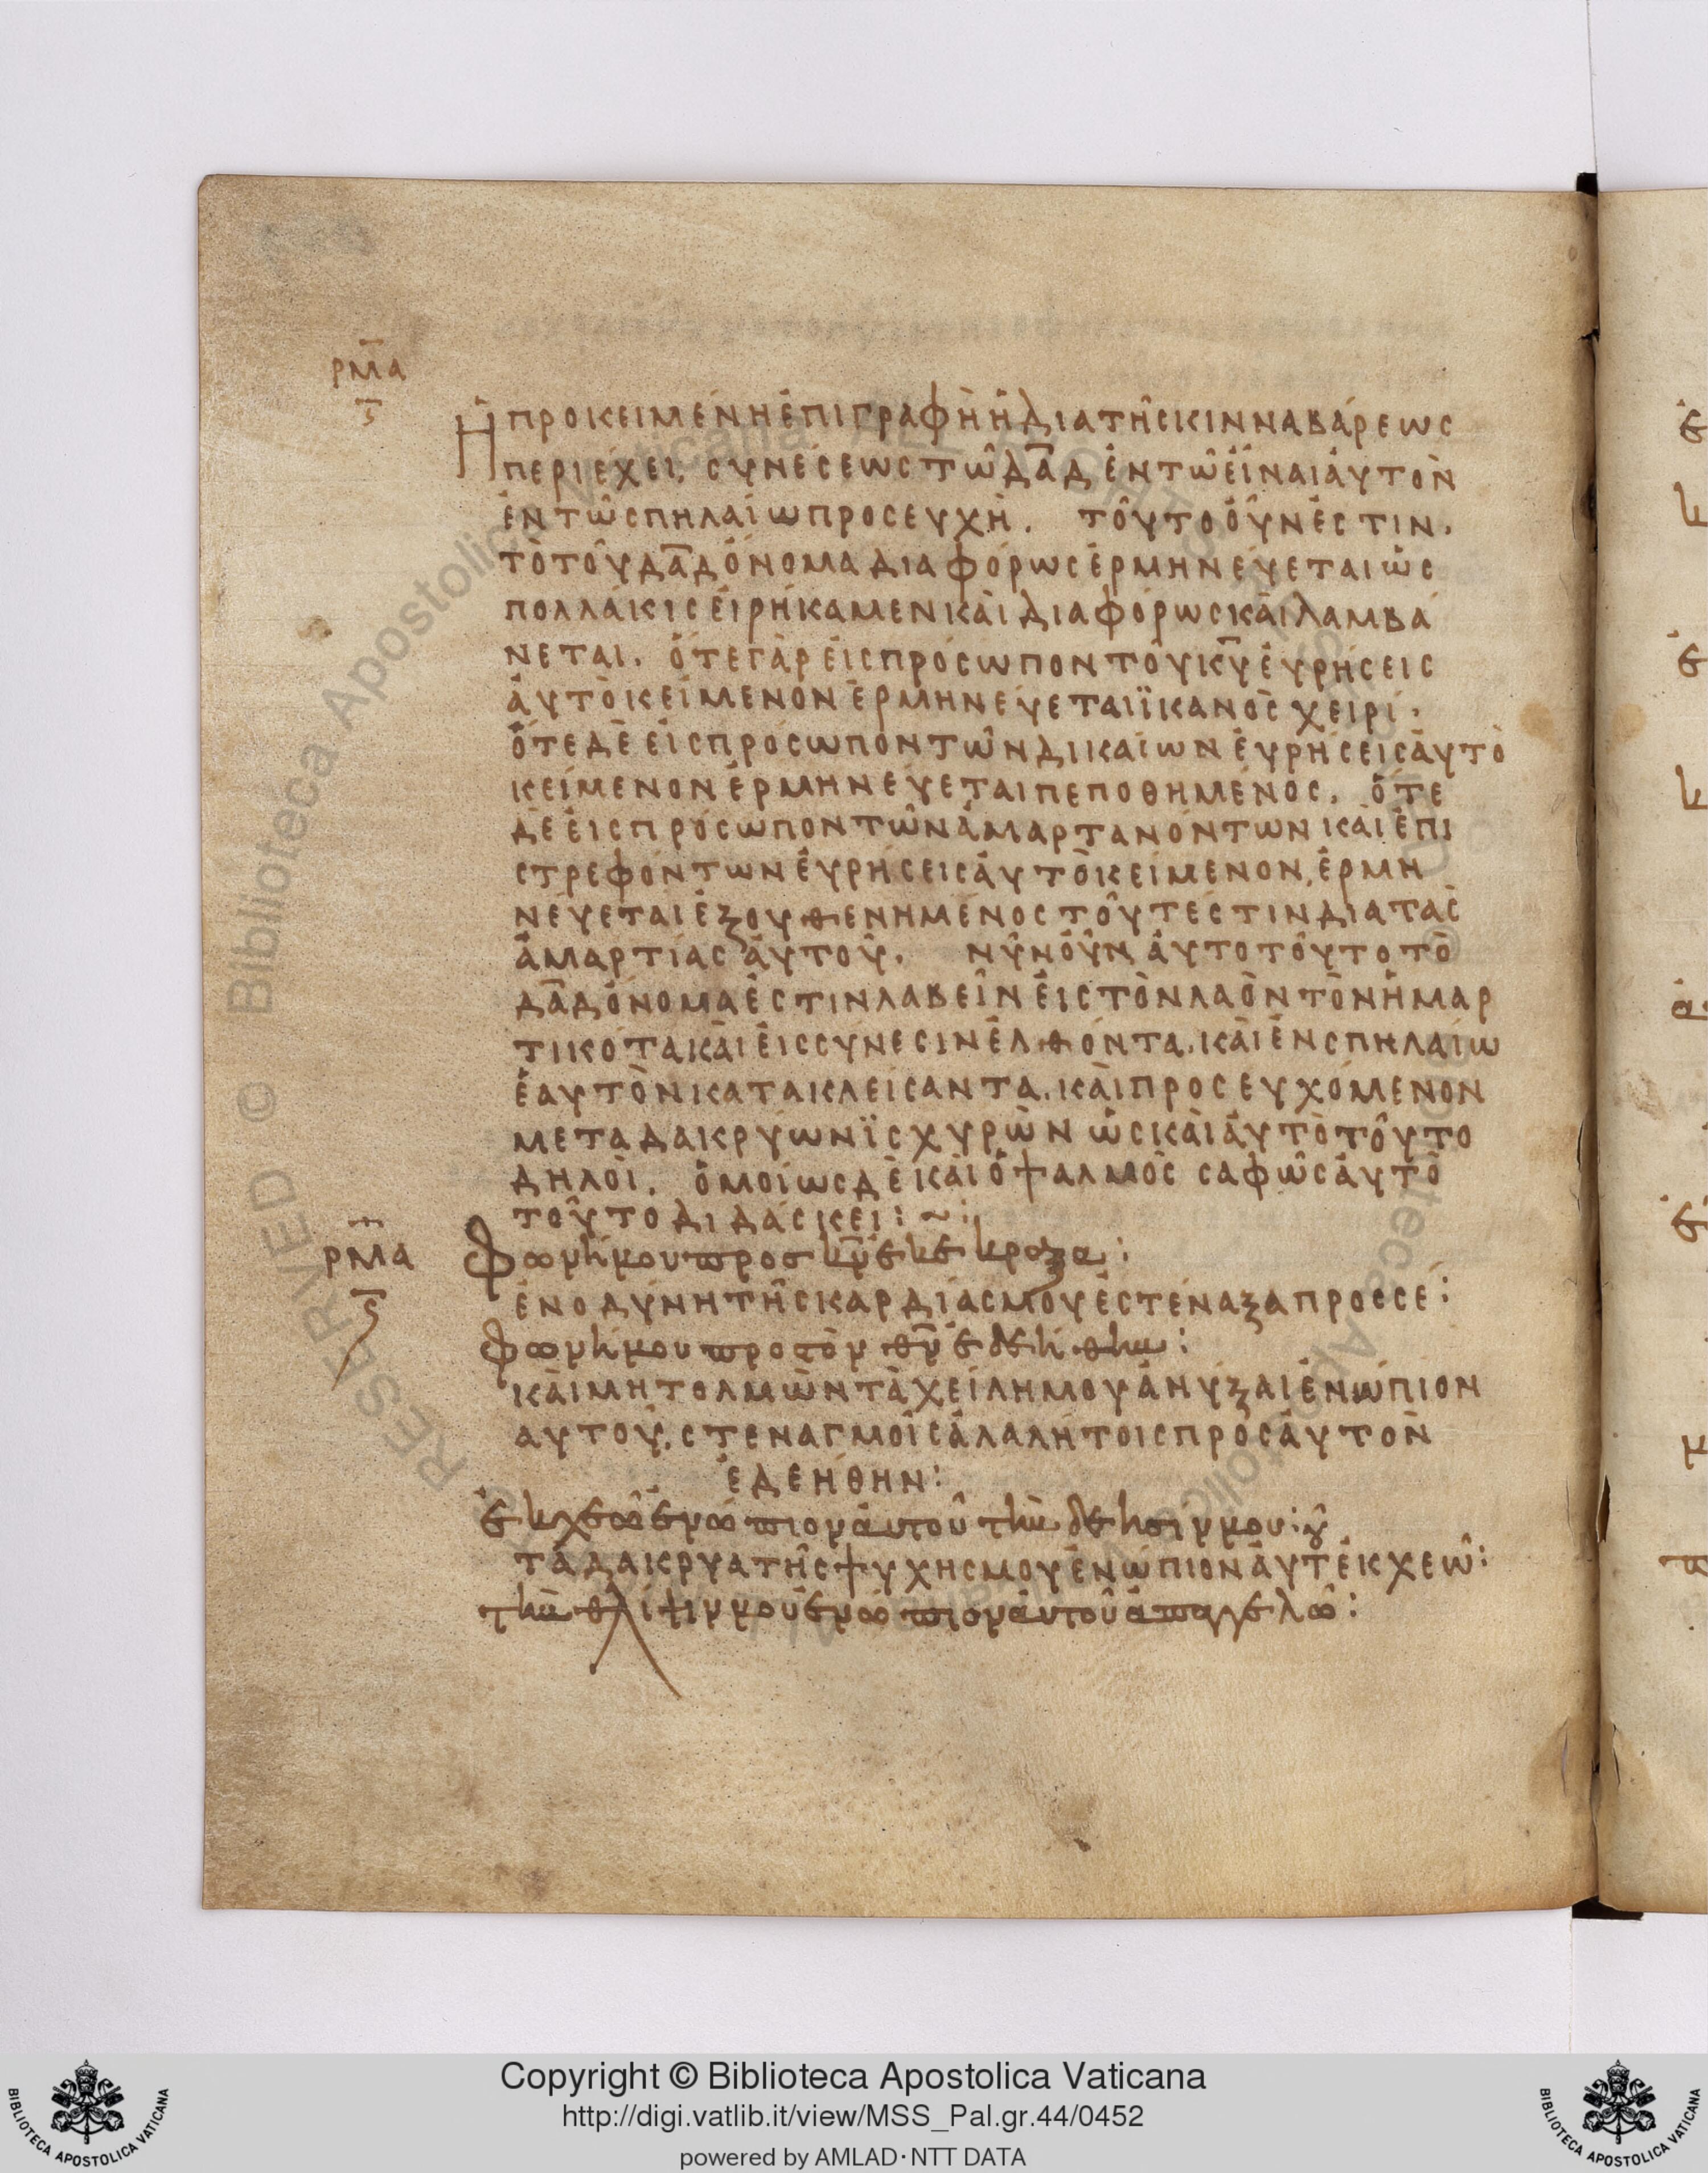 ρμα
ϛ
Ἡ προκειμένη ἐπιγραφὴ ἡ διὰ τῆς κινναβάρεως
περιέχει, συνέσεως τῶ δαδ ἐν τῶ εἶναι ἀυτὸν
ἐν τῶ σπηλαίω προσευχή. τοῦτο οὖν ἐστιν.
τὸ τοῦ δαδ ὄνομα διαφόρως ἑρμηνεύεται ὡς
πολλάκις εἰρήκαμεν καὶ διαφόρως καὶ λαμβά
νεται. ὅτε γὰρ εἰς πρόσωπον τοῦ κυ ἑυρήσεις
ἀυτὸ κείμενον ἑρμηνεύεται ἱκανὸς χειρί.
ὅτε δὲ εἰς πρόσωπον τῶν δικαίων ἑυρήσεις ἀυτὸ
κείμενον ἑρμηνεύεται πεποθημένος. ὅτε
δὲ εἰς πρόσωπον τῶν ἁμαρτανόντων καὶ ἐπι
στρεφόντων ἑυρήσεις ἀυτὸ κείμενον, ἑρμη
νεύεται ἐξουθενημένος τοῦτέστιν διὰ τὰς
ἁμαρτίας ἀυτοῦ. νῦν οὖν ἀυτὸ τοῦτο τὸ
δαδ ὄνομα ἐστιν λαβεῖν εἰς τὸν λαὸν τὸν ἡμαρ
τικότα καὶ εἰς σύνεσιν ἐλθόντα. καὶ ἐν σπηλαίω
ἑαυτὸν κατακλείσαντα. καὶ προσευχόμενον
μετὰ δακρύων ἰσχυρῶν ὡς καὶ ἀυτὸ τοῦτο
δηλοῖ. ὁμοίως δὲ καὶ ὁ ψαλμὸς σαφῶς ἀυτὸ
τοῦτο διδάσκει: ~:
ρμα
ϛ
Φωνῆ μου προσ κν ἐκέκραξα:
ἐν ὀδύνη τῆς καρδίας μου ἐστέναξα πρός σέ:
φωνῆ μου προσ τὸν θν ἐδεήθην:
καὶ μὴ τολμῶν τὰ χείλη μου ἀνύξαι ἐνώπιον
αυτοῦ, στεναγμοῖς ἀλαλήτοις πρὸς ἀυτὸν
ἐδεήθην:
ἐκχεῶ ἐνώπιον ἀυτοῦ τὴν δέησίν μου:
τὰ δάκρυα τῆς ψυχῆς μου ἐνώπιον ἀυτ ἐκχεῶ:
τὴν θλίψιν μου ἐνώπιον ἀυτοῦ ἀπαγγελῶ:
RESERVED © Biblioteca Apostolica Vaticana
Copyright © Biblioteca Apostolica Vaticana
http://digi.vatlib.it/view/MSS_Pal.gr.44/0452
powered by AMLAD·NTT DATA
BIBLIOTECA APOSTOLICA VATICANA
BIBLIOTECA APOSTOLICA VATICANA